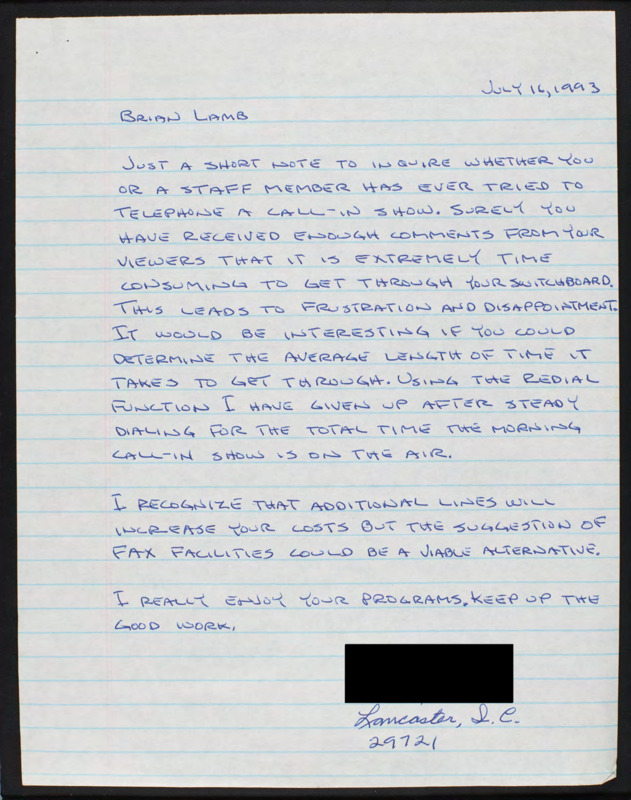 JULY 16, 1993
BRIAN LAMB
JUST A SHORT NOTE TO INQUIRE WHETHER YOU
OR A STAFF MEMBER HAS EVER TRIED TO
TELEPHONE A CALL-IN SHOW. SURELY YOU
HAVE RECEIVED ENOUGH COMMENTS FROM YOUR
VIEWERS THAT IT IS EXTREMELY TIME
CONSUMING TO GET THROUGH YOUR SWITCHBOARD.
THIS LEADS TO FRUSTRATION AND DISAPPOINTMENT.
IT WOULD BE INTERESTING IF YOU COULD
DETERMINE THE AVERAGE LENGTH OF TIME IT
TAKES TO GET THROUGH. USING THE REDIAL
FUNCTION I HAVE GIVEN UP AFTER STEADY
DIALING FOR THE TOTAL TIME THE MORNING
CALL-IN SHOW IS ON THE AIR.
I RECOGNIZE THAT ADDITIONAL LINES WILL
INCREASE YOUR COSTS BUT THE SUGGESTION OF
FAX FACILITIES COULD BE A VIABLE ALTERNATIVE.
I REALLY ENJOY YOUR PROGRAMS. KEEP UP THE
GOOD WORK.
Lancaster, S.C.
29721